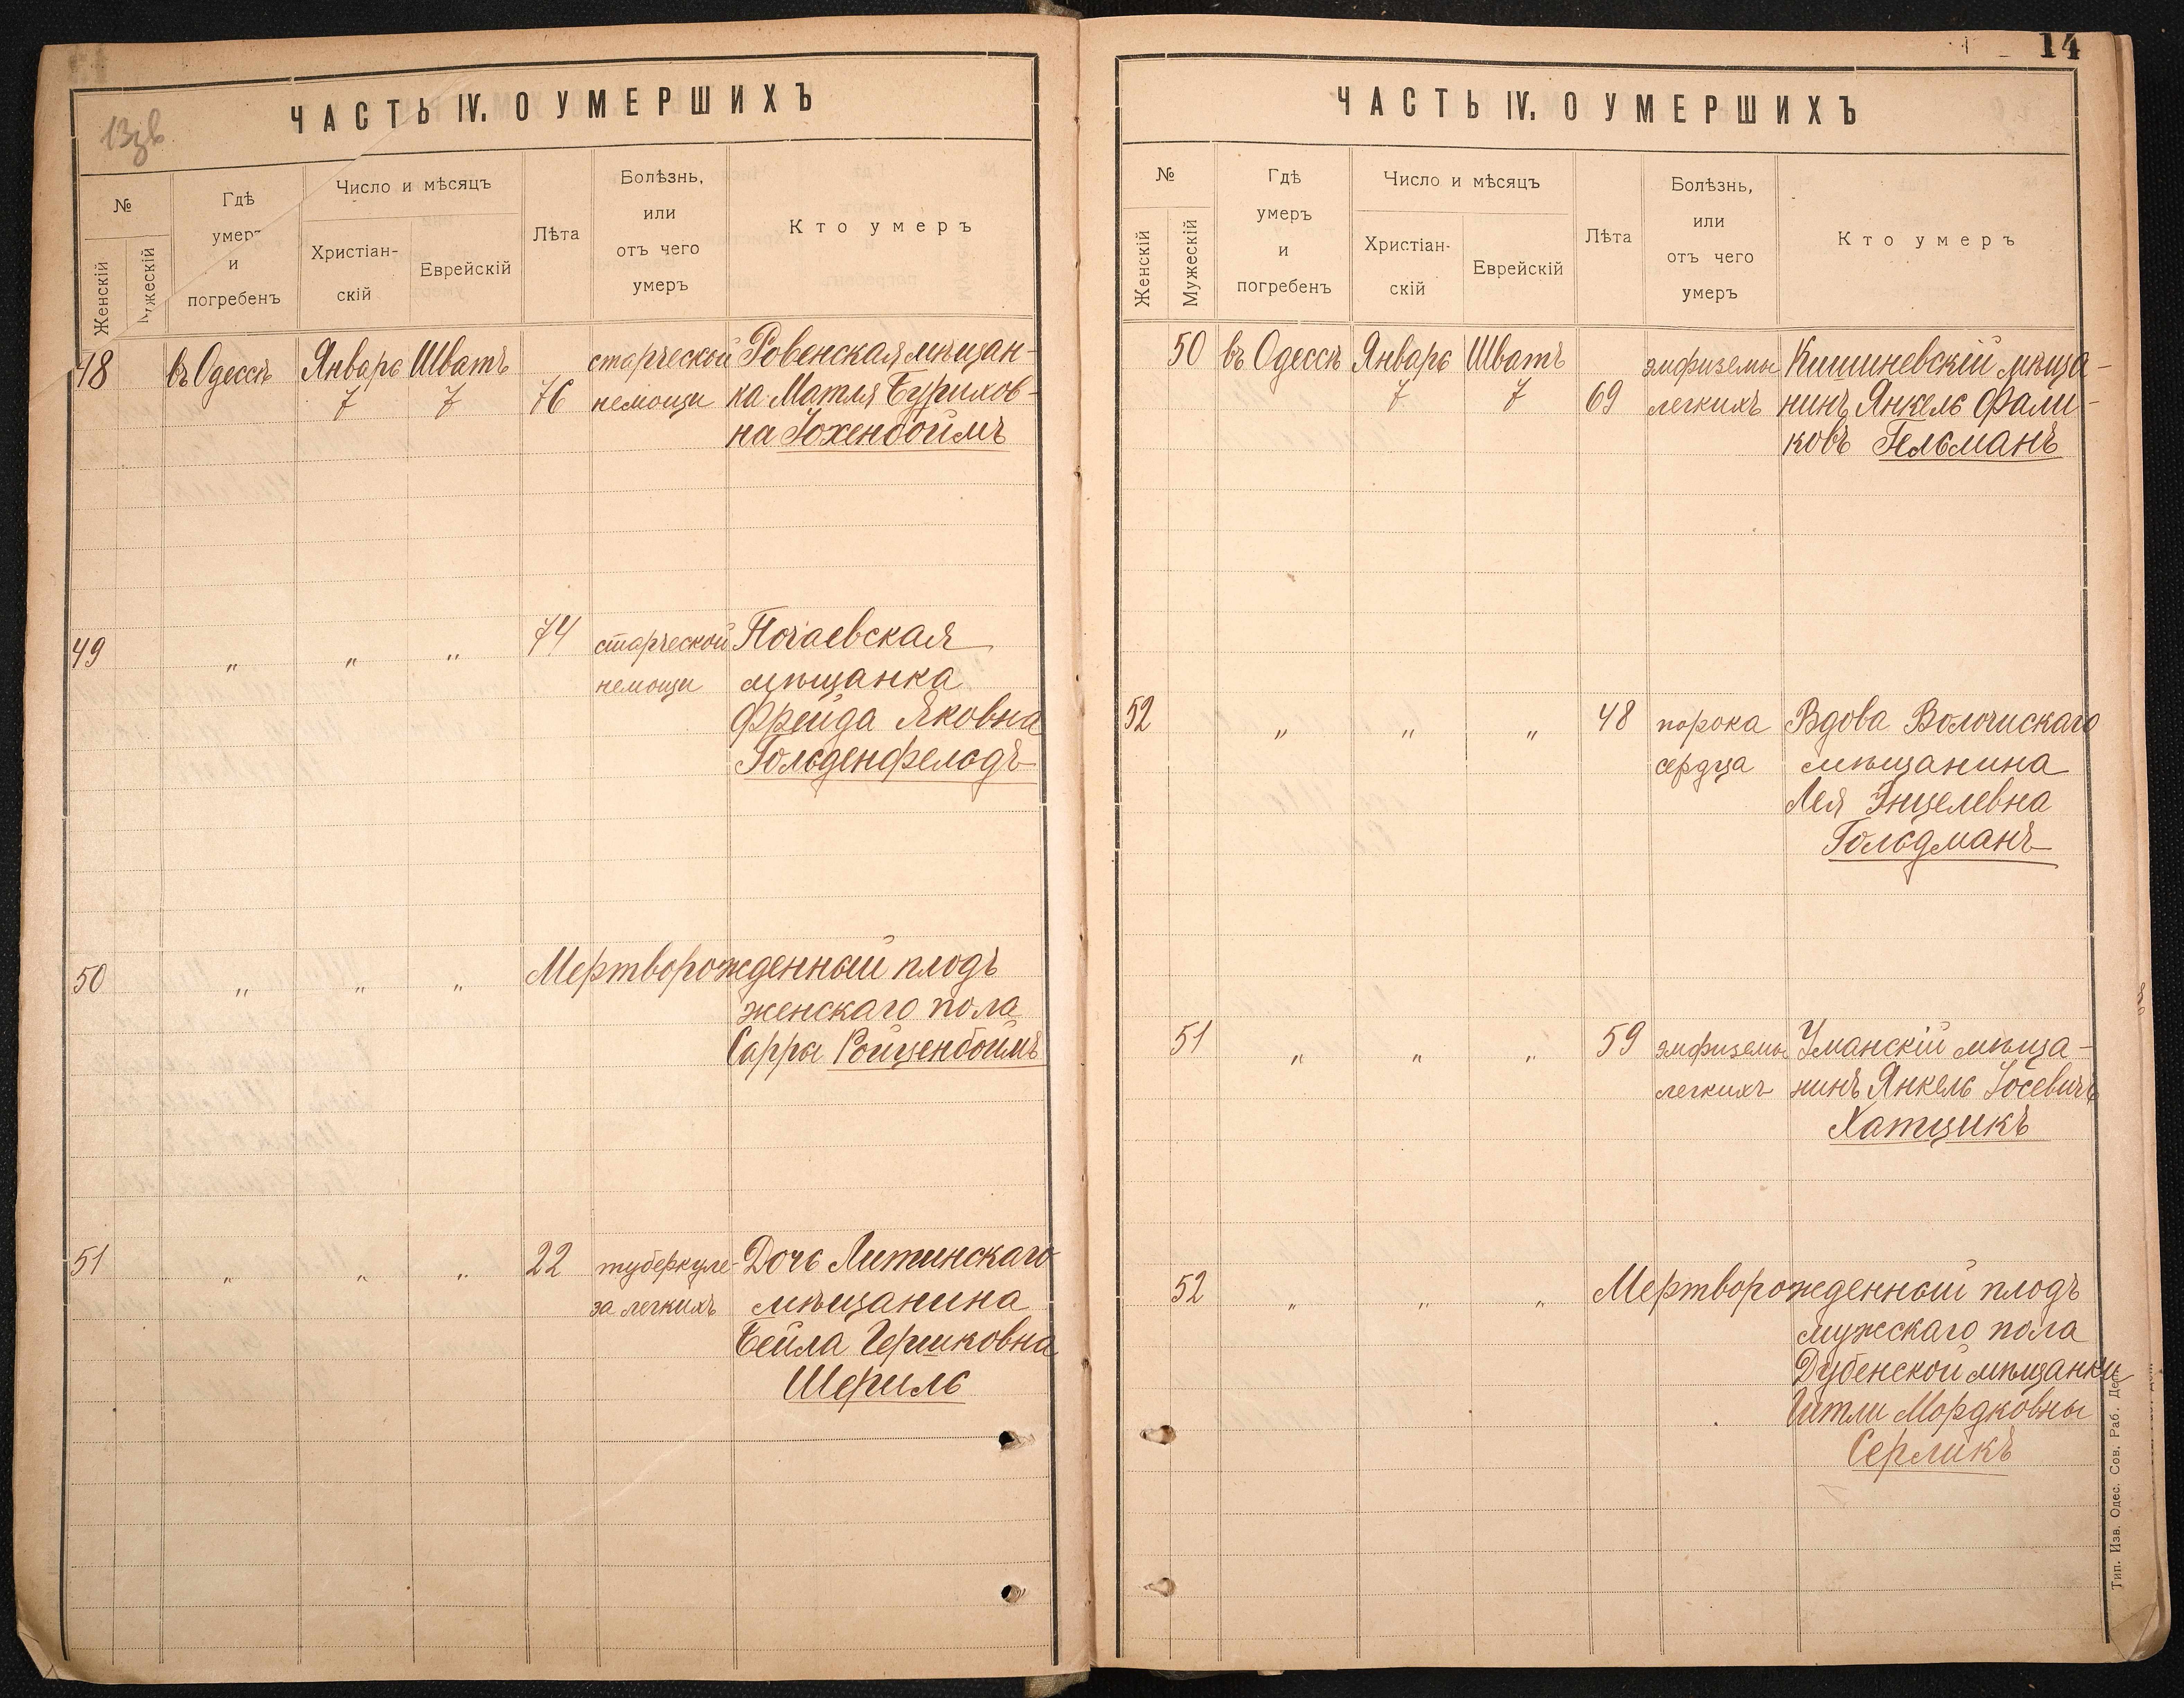 13 зв
ЧАСТЬ IV. О УМЕРШИХЪ
№
Женскій
Мужескій
Гдѣ
умеръ
и
погребенъ
Число и мѣсяцъ
Христіан-
скій
Еврейскій
Лѣта
Болѣзнь,
или
отъ чего
умеръ
Кто умеръ
48 въ Одессѣ Январь Шватъ старческой Ровенская мѣщан-
7 7 76 немощи ка Матля Бурихов-
на Гохенбоймъ
49 „ „ „ 74 старческой Почаевская
немощи мѣщанка
Фрейда Яковна
Гольденфельдъ
50 „ „ „ Мертворожденный плодъ
женскаго пола
Сарры Ройценбоймъ
51 „ „ „ 22 туберкуле- Дочь Литинскаго
за легкихъ мѣщанина
Бейла Гершковна
Шериль
14
ЧАСТЬ IV. О УМЕРШИХЪ
№
Женскій
Мужескій
Гдѣ
умеръ
и
погребенъ
Число и мѣсяцъ
Христіан-
скій
Еврейскій
Лѣта
Болѣзнь,
или
отъ чего
умеръ
Кто умеръ
50 въ Одессѣ Январь Шватъ эмфиземы Кишиневскій мѣща-
7 7 69 легкихъ нинъ Янкель Фали-
ковъ Гельманъ
52 „ „ „ 48 порока Вдова Волочискаго
сердца мѣщанина
Лея Энцелевна
Гольдманъ
51 „ „ „ 59 эмфиземы Уманскій мѣща-
легкихъ нинъ Янкель Іосевичъ
Хатцикъ
52 „ „ „ Мертворожденный плодъ
мужскаго пола
Дубенской мѣщанки
Гитли Мордковны
Серликъ
Тип. Изв. Одес. Сов. Раб. Деп.